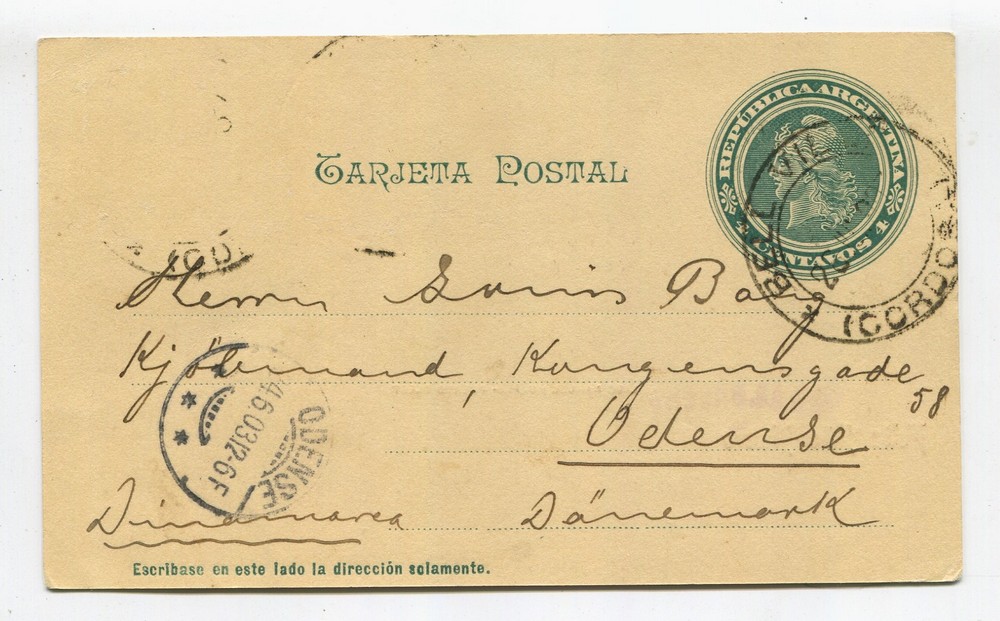 REPÚBLICA ARGENTINA
4 CENTAVOS 4
TARJETA POSTAL
BELL VILLE
(CORDOBA)
Herrn Louis Bang
Kjöbmand, Kongensgade
58
Odense
ODENSE
4.6.03 12-6 F
Dinamarca Dänemark
Escribase en este lado la dirección solamente.